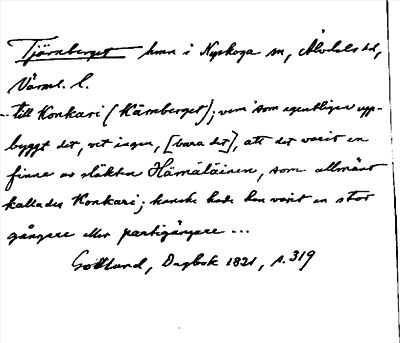 Tjärnberget hmn i Nyskoga sn, Älvdals hd,
Värml. l.
-- till Konkari (Kärnberget); vem som egentligen upp-
byggt det, vet ingen, [bara det], att det varit en
finne av släkten Hämäläinen, som allmänt
kallades Konkari; kanske hade han varit en stor
gångare eller partigängare ...
Gottlund, Dagbok 1821, s. 319